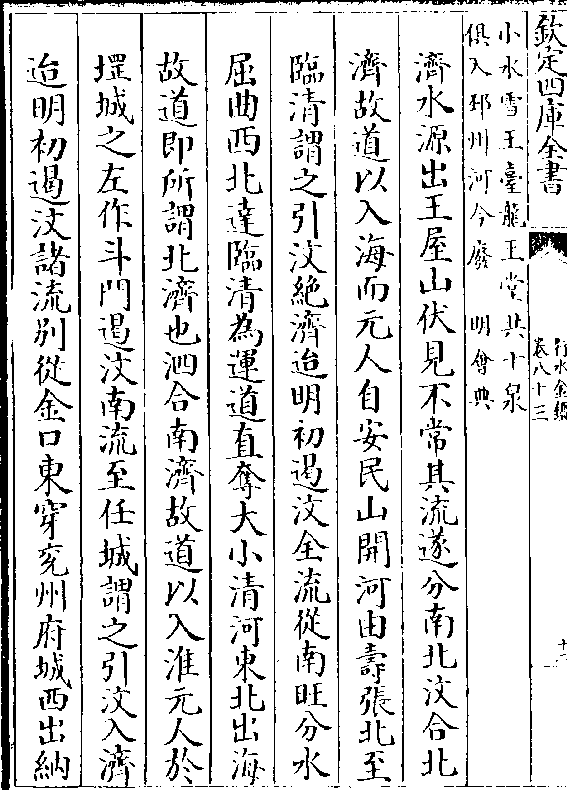 欽定四庫全書
行水金鑑
卷八十三
十三
小水雪王臺龍王堂共十泉
俱入邳州河今廢　明會典
濟水源出王屋山伏見不常其流遂分南北汶合北
濟故道以入海而元人自安民山開河由壽張北至
臨清謂之引汶絶濟迨明初遏汶全流從南旺分水
屈曲西北達臨清為運道直奪大小清河東北出海
故道即所謂北濟也泗合南濟故道以入淮元人於
堽城之左作斗門遏汶南流至任城謂之引汶入濟
迨明初遏汶諸流别從金口東穿兖州府城西出納